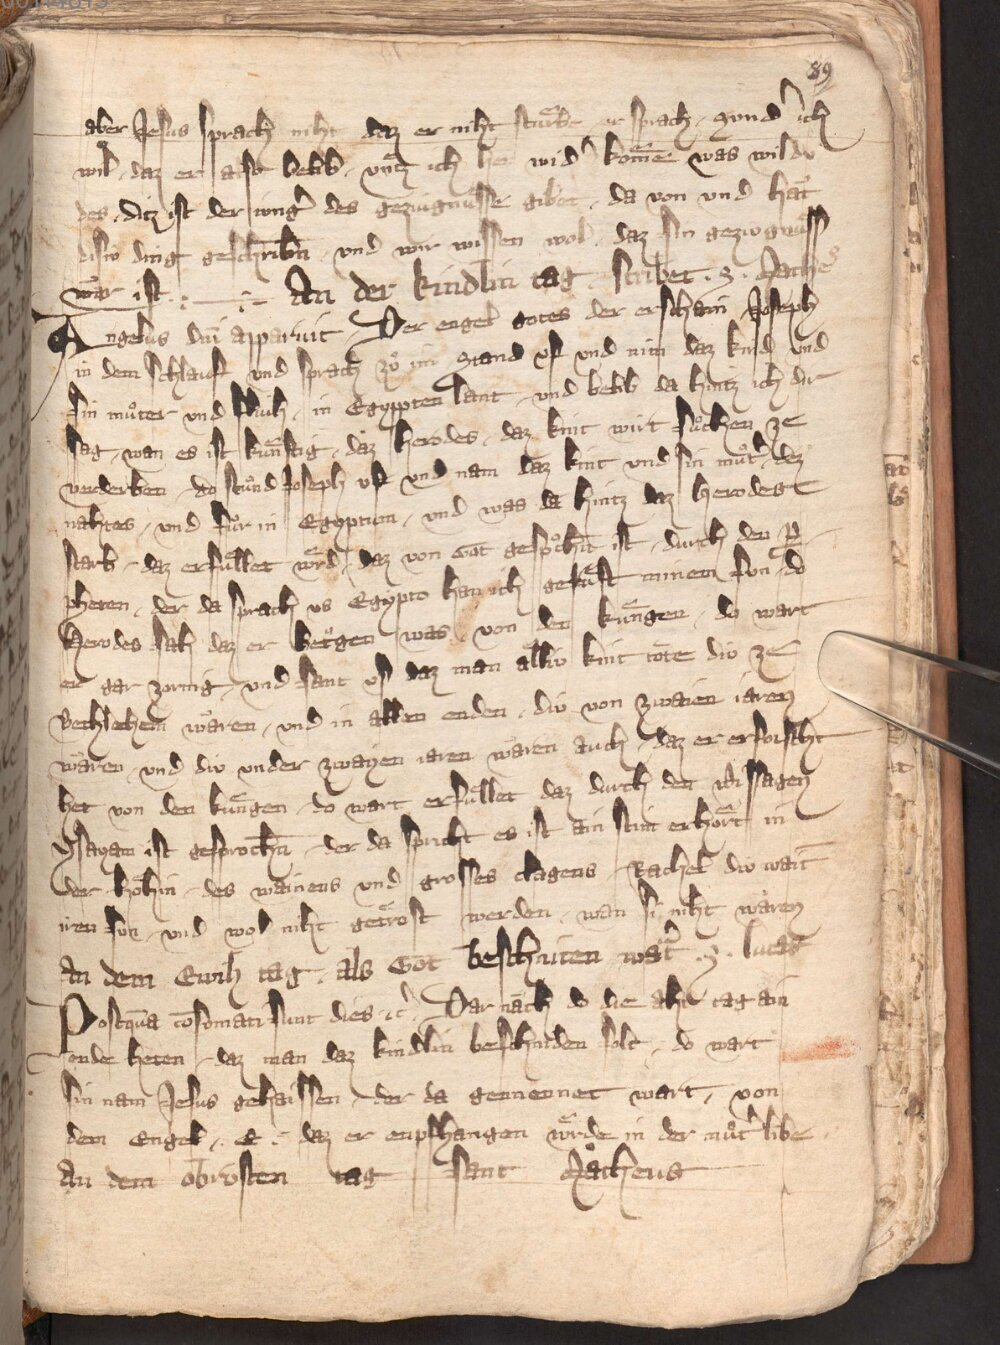 89
aber Jesus sprach niht daz er niht stuͤrbe er sprach sund' ich
wil daz er also belib untz ich her wid' kome was wil du
des ditz ist der iung' des gezuignuͤsse gibet da von und hat
disiu ding geschribn und wir wissen wol daz sin gezuignuͤss
war ist An der kindlin tag scribet S Matheͦs
Angelus dni apparuit Der engel gotes der erschain Joseph
in dem schlauf und sprach zuͦ im stand uf und nim daz kind und
sin muͦter und fliuh in Egyppten lant und belib da hintz ich dir
sag wan es ist kuͤnftig daz herodes daz kint wirt suͦchen ze
verderben do stuͦnd Joseph uf und nam daz kint und sin muͦt' dez
nahtes und fuͦr in Egyptum und was da hintz daz herodes
starb daz erfuͤllet wuͤrd daz von Got gesprochn ist durch den p
pheten der da sprach us Egypto han ich geruͤft minem sun do
Herodes sah daz er betrogen was von den kuͤngen do wart
er gar zornig und sant us daz man alliu kint tote diu ze
Bethlehem waren und in allen enden diu von zwaien iaren
waren und diu under zwayen iaren waren auch daz er erforscht
het von den kuͤngen do wart erfuͤllet daz durch den wissagen
Ysayam ist gesprochn der da spricht es ist ain stim erhoͤrt in
der hohin des wainens und grosses clagens Rachel diu wait
iren sun und wol niht getrost werden wan si niht waren
An dem Ewih tag als Got beschniten wart S lucas
Postqua cosomati sunt dies ic' Dar nach do die aht tag ain
ende heten daz man daz kindlin beschniden solt do wart
sin nam Jesus gehaissen der da genennet wart von
dem Engel E daz er enpfhangen wuͤrde in der muͦt' libe
An dem obrosten tag sant Matheus